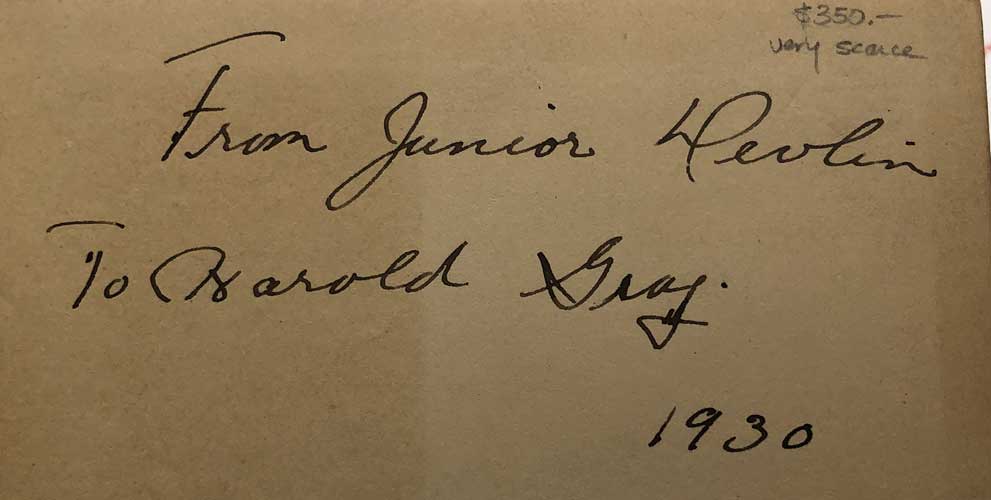 $350.—
very scarce
From Junior Devlin
To Harold Gray.
1930